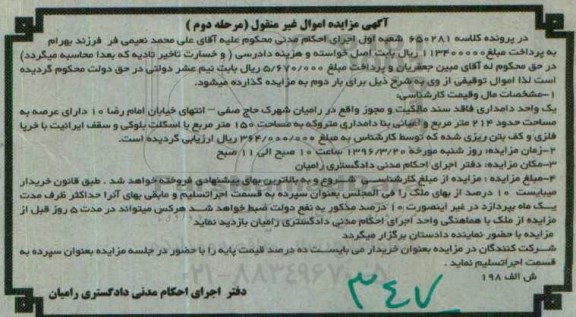 آگهی مزایده اموال غیر منقول (مرحله دوم)
در پرونده کلاسه 650281 شعبه اول اجرای احکام مدنی محکوم علیه آقای علی محمد نعیمی فر فرزند بهرام
به پرداخت مبلغ 113400000 ریال بابت اصل خواسته و هزینه دادرسی (و خسارت تاخیر تادیه که بعدا محاسبه میگردد)
در حق محکوم له آقای مبین جعفریان و پرداخت مبلغ 5/670/000 ریال بابت نیم عشر دولتی در حق دولت محکوم گردیده
است لذا اموال توقیفی از وی به شرح ذیل برای بار دوم به مزایده گذارده میشود.
1-مشخصات مال وقیمت کارشناسی:
یک واحد دامداری فاقد سند مالکیت و مجوز واقع در رامیان شهرک حاج صفی – انتهای خیابان امام رضا 10 دارای عرصه به
مساحت حدود 213 متر مربع و اعیانی بنا دامداری متروکه به مساحت 150 متر مربع با اسکلت بلوکی و سقف ایرانیت با خرپا
فلزی و کف بتن ریزی شده که توسط کارشناس به مبلغ 364/000/000 ریال ارزیابی گردیده است.
2-زمان مزایده: روز شنبه مورخه 1396/3/20 ساعت 10 صبح الی 11 صبح
3-مکان مزایده: دفتر اجرای احکام مدنی دادگستری رامیان
4-مبلغ مزایده: مزایده از مبلغ کارشناسی شروع و به بالاترین بهای پیشنهادی فروخته خواهد شد. طبق قانون خریدار
میبایست 10 درصد از بهای ملک را فی المجلس بعنوان سپرده به قسمت اجراتسلیم و مابقی بهای آنرا حداکثر ظرف مدت
یک ماه بپردازد در غیر اینصورت 10 درصد مذکور به نفع دولت ضبط خواهد شد هرکس میتواند در مدت 5 روز قبل از
مزایده از ملک با هماهنگی واحد اجرای احکام مدنی دادگستری رامیان بازدید نماید
مزایده با حضور نماینده دادستان برگزار میگردد
شرکت کنندگان در مزایده بعنوان خریدار می بایست ده درصد قیمت پایه را با حضور در جلسه مزایده بعنوان سپرده به
قسمت اجراتسلیم نماید.
ش الف 198
دفتر اجرای احکام مدنی دادگستری رامیان
347